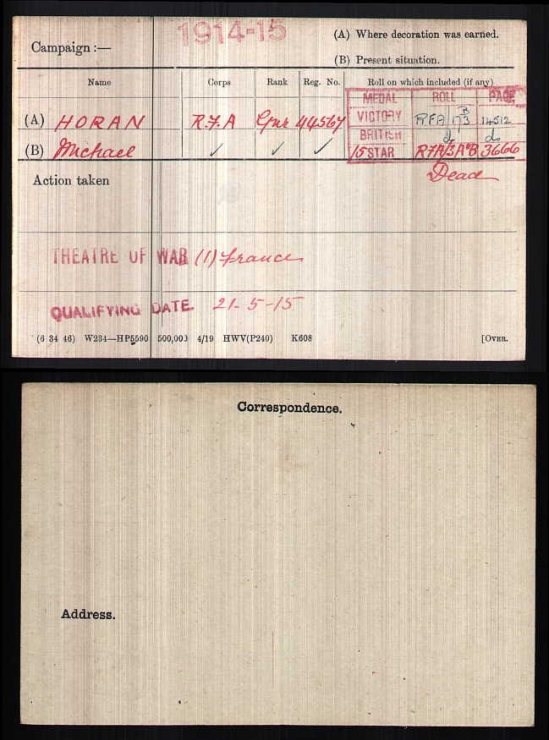 Campaign :—
1914-15
(A) Where decoration was earned.
(B) Present situation.
Name Corps Rank Reg. No. Roll on which included (if any)
MEDAL ROLL PAGE
(A) HORAN R.F.A Gnr 44567 VICTORY RFA 173 B 14512
BRITISH do do
(B) Michael ✓ ✓ ✓ 15 STAR RFA/3A"B 3666
Action taken Dead
THEATRE OF WAR (1) France
QUALIFYING DATE. 21-5-15
(6 34 46) W234—HP5590 500,000 4/19 HWV(P240) K608 [OVER.
Correspondence.
Address.